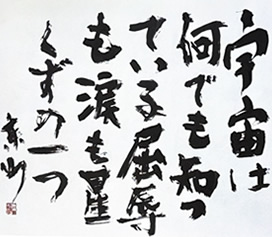 宇宙は
何でも知っ
ている屈辱
も涙も星
くずの一つ